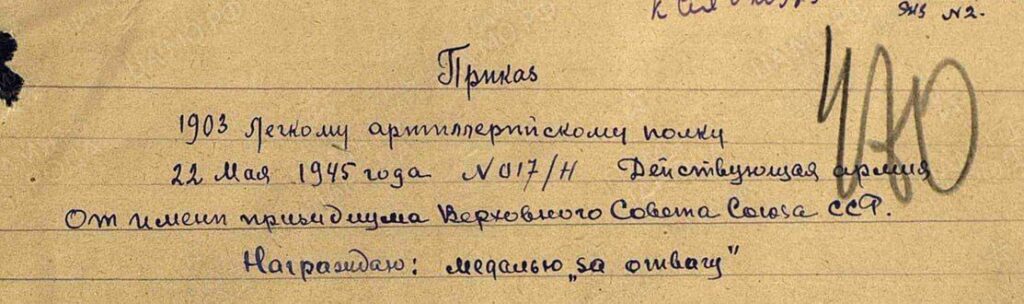 Экз №2.
Приказ
1903 Легкому артиллерийскому полку
22 Мая 1945 года №017/Н Действующая армия
От имени призидиума Верховного Совета Союза ССР.
Награждаю: медалью „за отвагу"